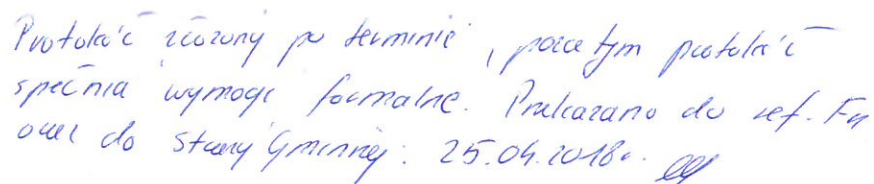 Protokół złożony po terminie, poza tym protokół
spełnia wymogi formalne. Przekazano do ref. Fn
oraz do strony Gminnej. 25.04.2018r.